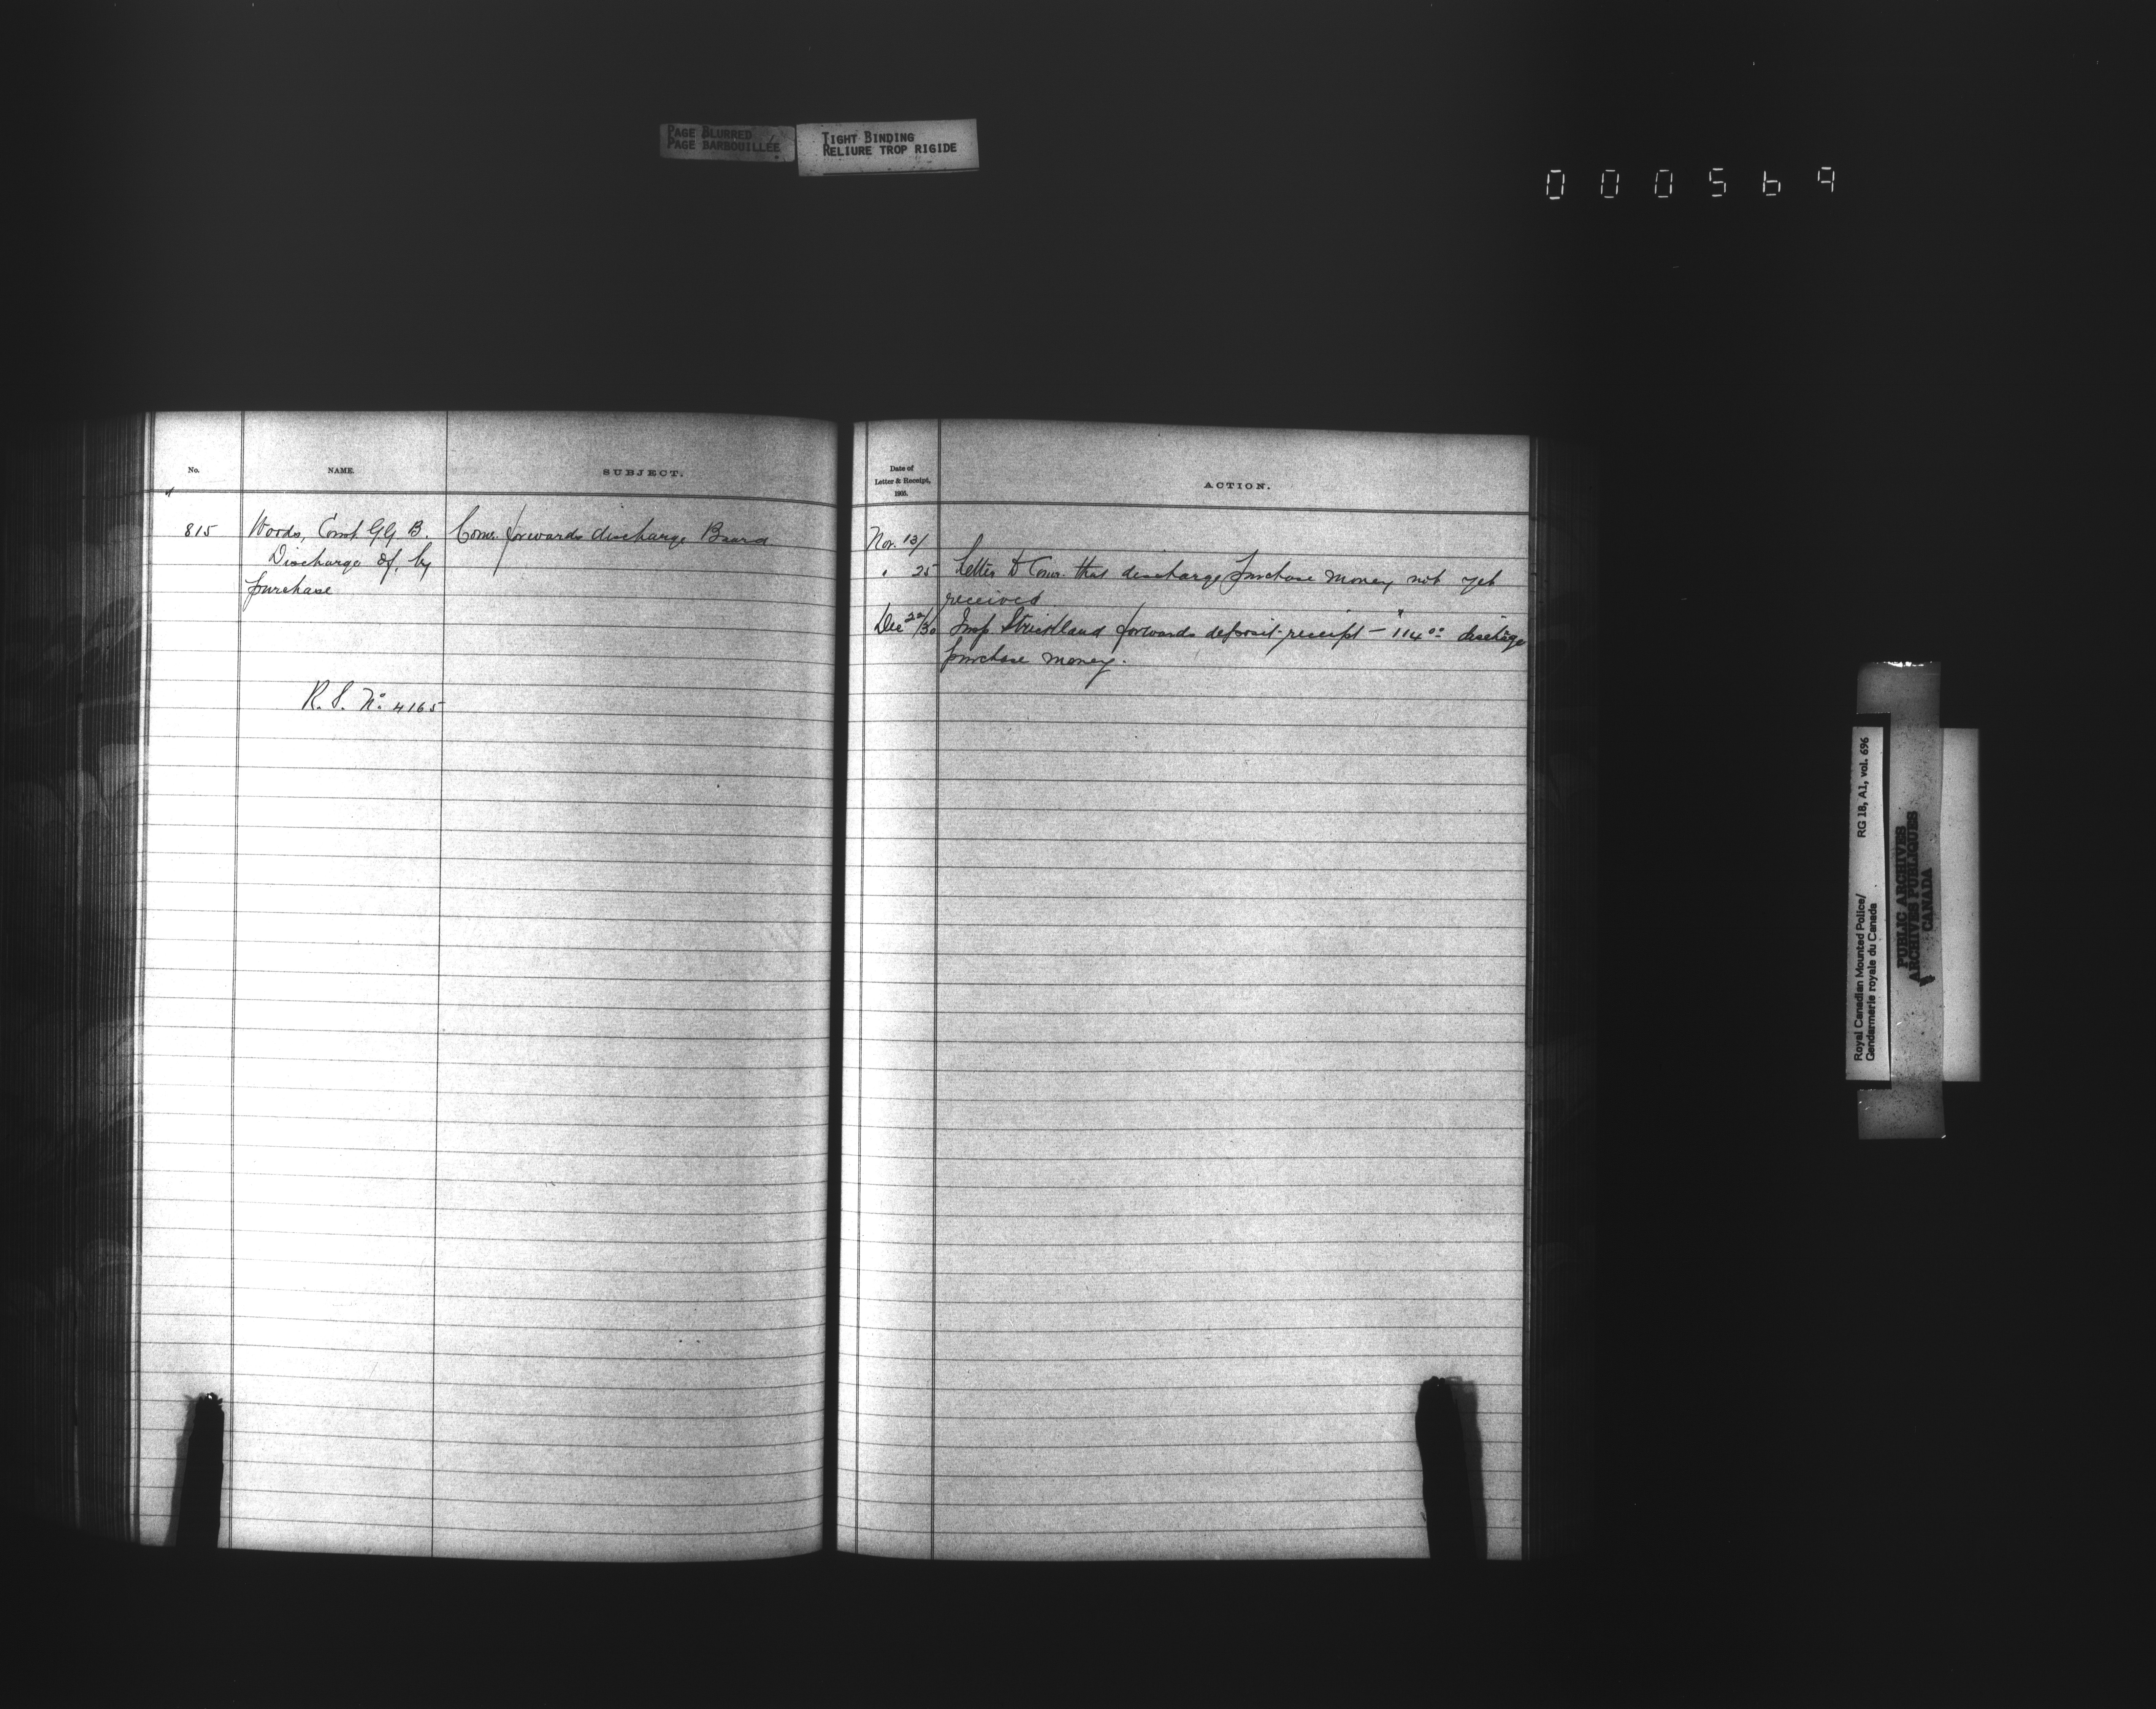 PAGE BLURRED
PAGE BARBOUILLÉE
TIGHT BINDING
RELIURE TROP RIGIDE
000569
No.
NAME.
SUBJECT.
815
Woods, Const G.G. B.
Discharge of, by
purchase
R. S. No. 4165
Comr. forwards discharge Board
Date of
Letter & Receipt,
1905.
ACTION.
Nov. 13/
" 25 Letter to Comr. that discharge purchase money not yet
received
Dec 22/30 Insp Strickland forwards deposit-receipt - $114.00 discharge
purchase money.
Royal Canadian Mounted Police/ RG 18, A1, vol. 696
Gendarmerie royale du Canada
PUBLIC ARCHIVES
ARCHIVES PUBLIQUES
CANADA